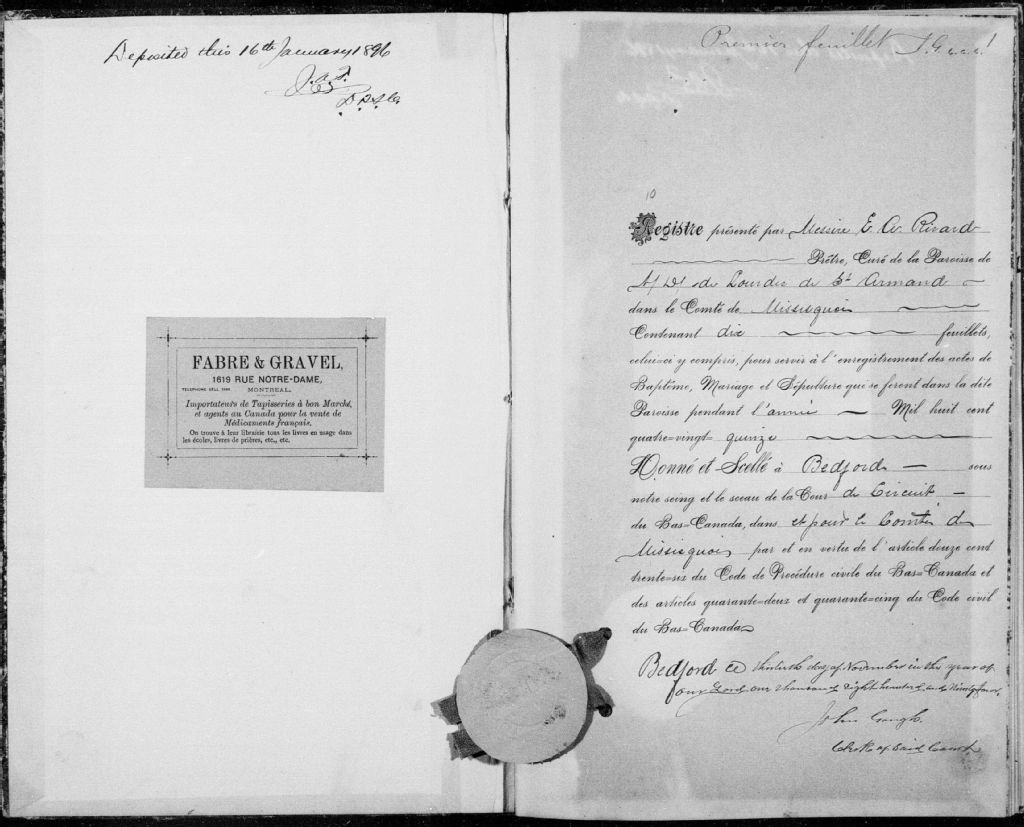 Deposited this 16th January 1896
J.A.F.
D.P.S.C.
FABRE & GRAVEL,
1619 RUE NOTRE-DAME,
TELEPHONE BELL
MONTREAL.
Importateurs de Tapisseries à bon Marché,
et agents au Canada pour la vente de
Médicaments français.
On trouve à leur librairie tous les livres en usage dans
les écoles, livres de prières, etc., etc.
Premier feuillet J.G. c.c.c.
10
Registre présenté par Messire E. A. Rivard
Prêtre, Curé de la Paroisse de
N. D. de Lourdes de St Armand
dans le Comté de Missisquoi
Contenant dix feuillets,
celui-ci y compris, pour servir à l'enregistrement des actes de
Baptême, Mariage et Sépulture qui se feront dans la dite
Paroisse pendant l'année Mil huit cent
quatre-vingt-quinze
Donné et Scellé à Bedford sous
notre seing et le sceau de la Cour de Circuit
du Bas-Canada, dans et pour le Comté de
Missisquoi, par et en vertu de l'article douze cent
trente-six du Code de Procédure civile du Bas-Canada et
des articles quarante-deux et quarante-cinq du Code civil
du Bas-Canada
Bedford ce thirtieth day of November in the year of
our Lord one thousand Eight hundred and Ninety four.
John Gough.
Clerk of Said Court